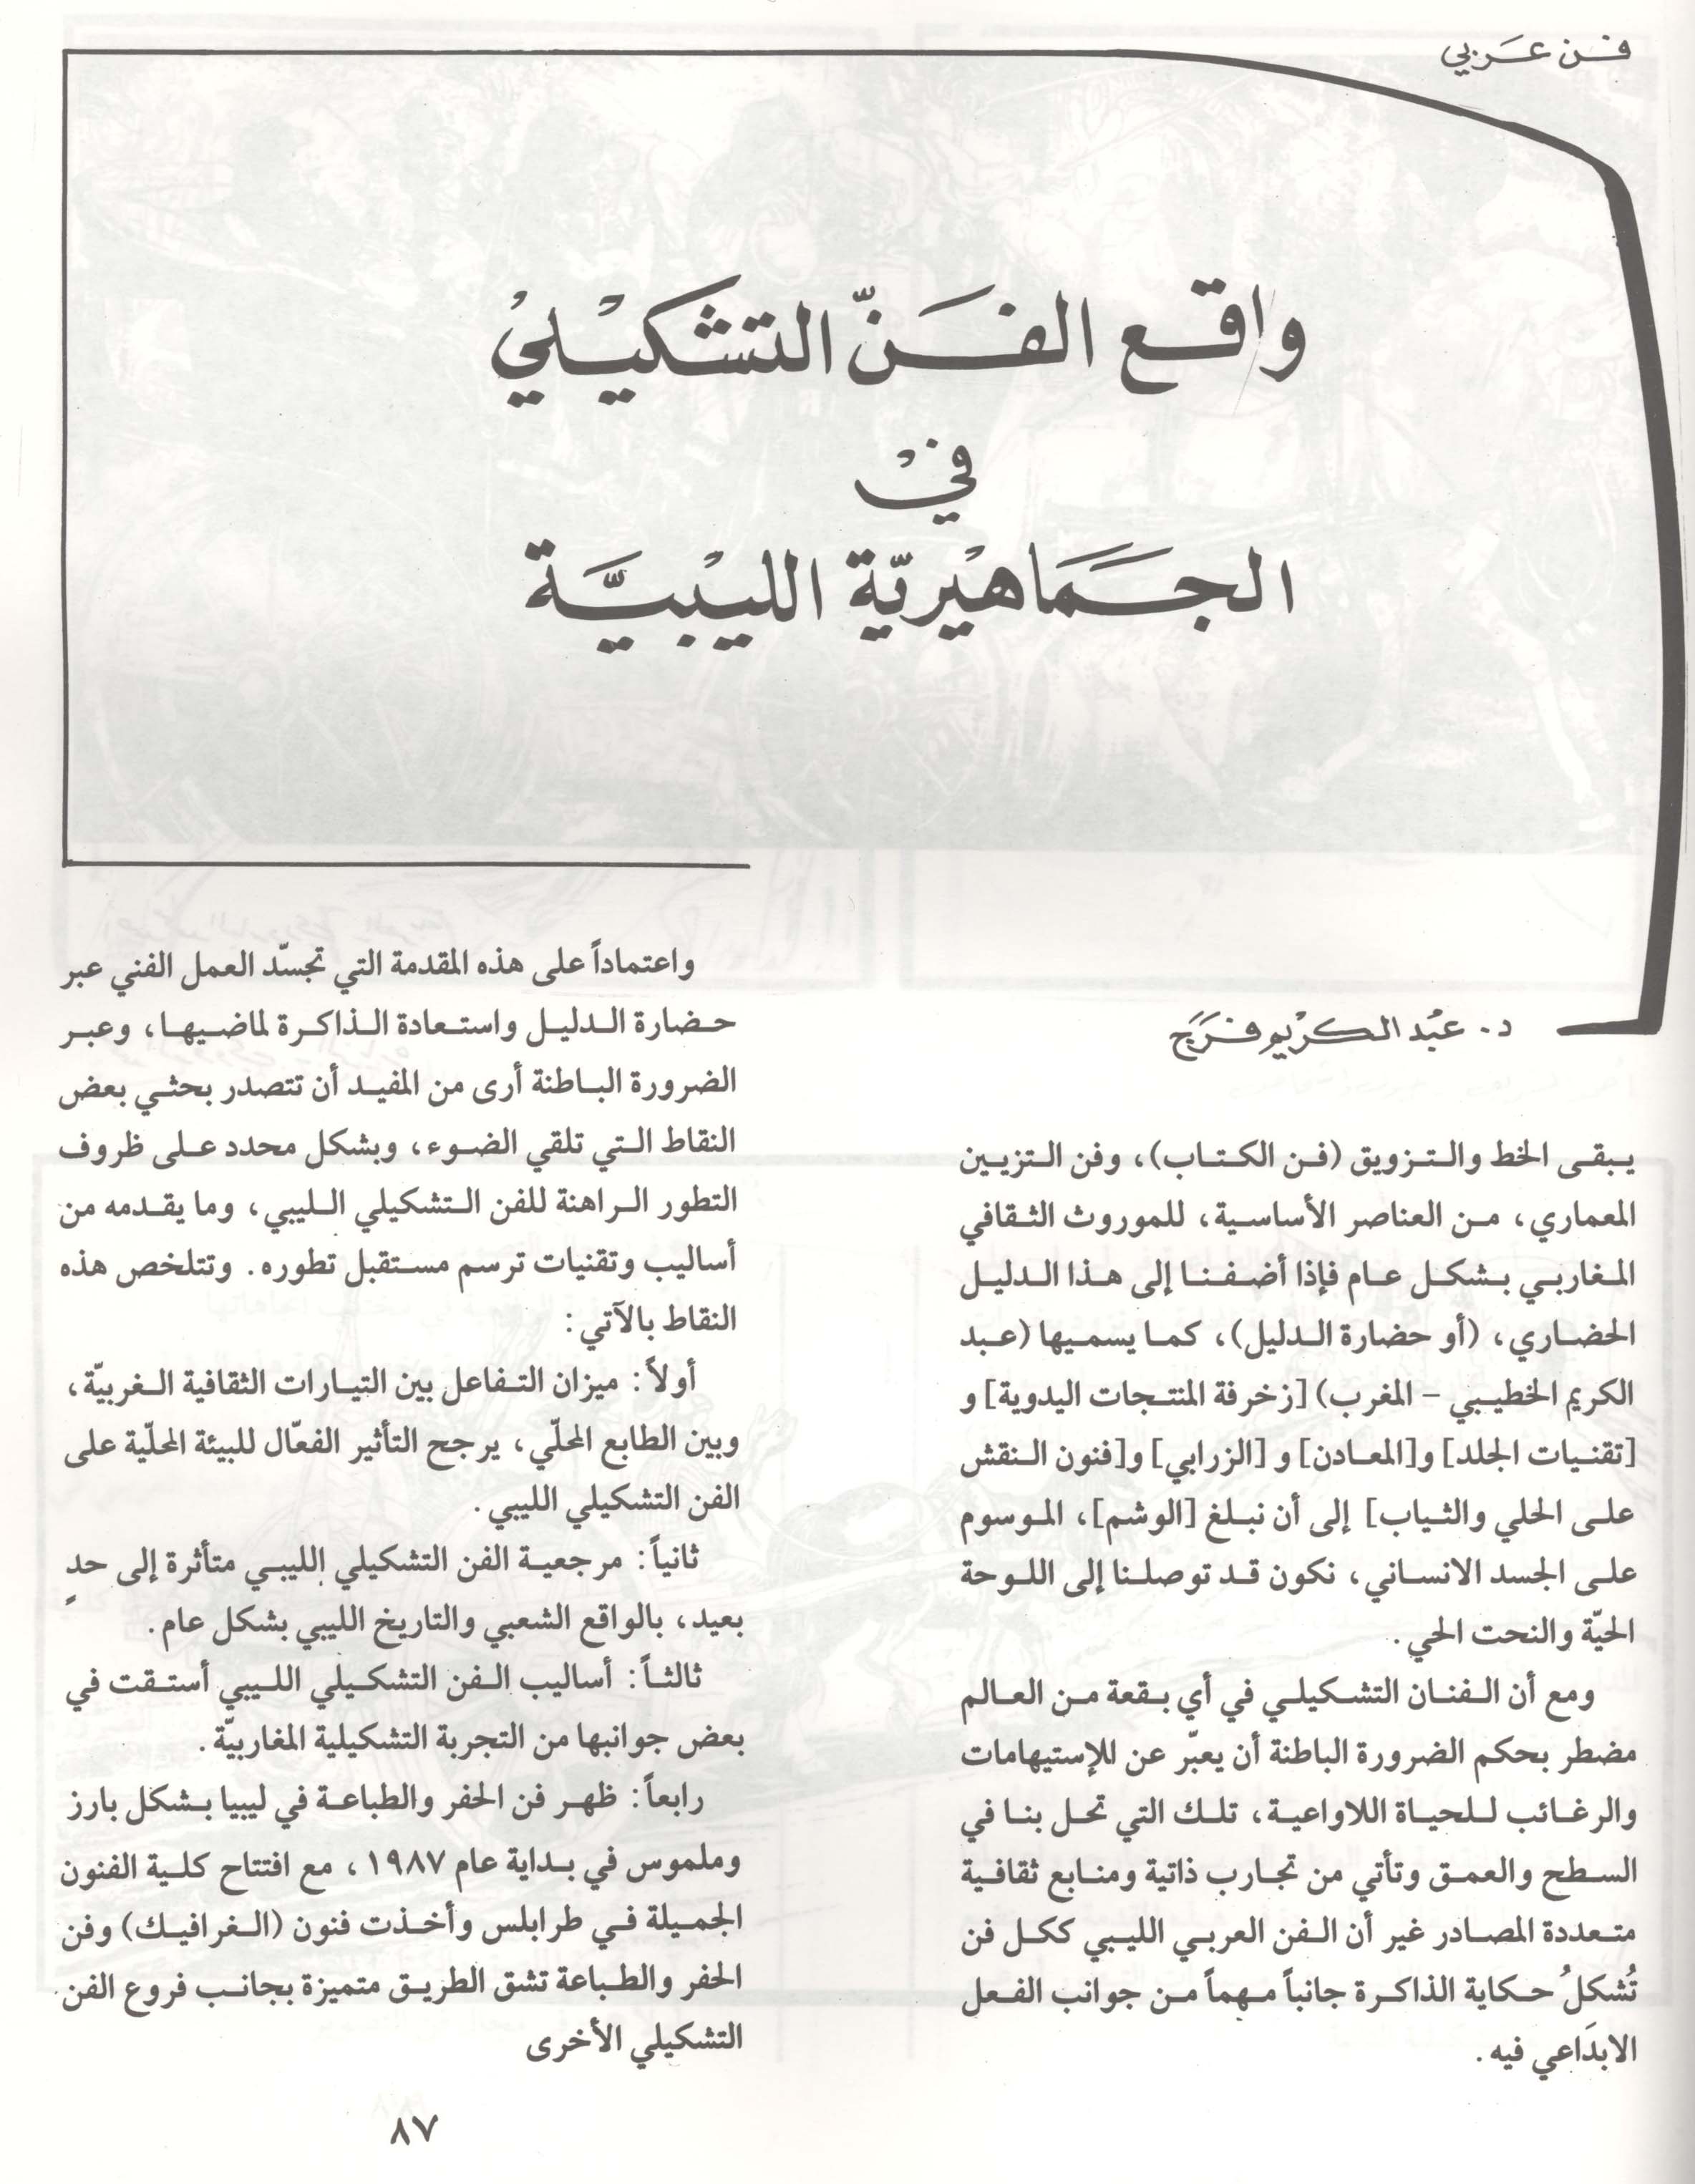 فن عربي
واقع الفنّ التشكيلي
في
الجماهيريّة الليبيّة
د. عبد الكريم فرج
يبقى الخط والتزويق (فن الكتاب)، وفن التزيين
المعماري، من العناصر الأساسية، للموروث الثقافي
المغاربي بشكل عام فإذا أضفنا إلى هذا الدليل
الحضاري، (أو حضارة الدليل)، كما يسميها (عبد
الكريم الخطيبي - المغرب) [زخرفة المنتجات اليدوية] و
[تقنيات الجلد] و[المعادن] و [الزرابي] و[فنون النقش
على الحلي والثياب] إلى أن نبلغ [الوشم]، الموسوم
على الجسد الانساني، نكون قد توصلنا إلى اللوحة
الحيّة والنحت الحي.
ومع أن الفنان التشكيلي في أي بقعة من العالم
مضطر بحكم الضرورة الباطنة أن يعبّر عن للإستيهامات
والرغائب للحياة اللاواعية، تلك التي تحل بنا في
السطح والعمق وتأتي من تجارب ذاتية ومنابع ثقافية
متعددة المصادر غير أن الفن العربي الليبي ككل فن
تُشكلُ حكاية الذاكرة جانباً مهماً من جوانب الفعل
الابدَاعي فيه.
واعتماداً على هذه المقدمة التي تجسّد العمل الفني عبر
حضارة الدليل واستعادة الذاكرة لماضيها، وعبر
الضرورة الباطنة أرى من المفيد أن تتصدر بحثي بعض
النقاط التي تلقي الضوء، وبشكل محدد على ظروف
التطور الراهنة للفن التشكيلي الليبي، وما يقدمه من
أساليب وتقنيات ترسم مستقبل تطوره. وتتلخص هذه
النقاط بالآتي:
أولاً: ميزان التفاعل بين التيارات الثقافية الغربيّة،
وبين الطابع المحلّي، يرجح التأثير الفعّال للبيئة المحلّية على
الفن التشكيلي الليبي.
ثانياً: مرجعية الفن التشكيلي الليبي متأثرة إلى حدٍ
بعيد، بالواقع الشعبي والتاريخ الليبي بشكل عام.
ثالثاً: أساليب الفن التشكيلي الليبي أستقت في
بعض جوانبها من التجربة التشكيلية المغاربيّة.
رابعاً: ظهر فن الحفر والطباعة في ليبيا بشكل بارز
وملموس في بداية عام ١٩٨٧، مع افتتاح كلية الفنون
الجميلة في طرابلس وأخذت فنون (الغرافيك) وفن
الحفر والطباعة تشق الطريق متميزة بجانب فروع الفن
التشكيلي الأخرى
٨٧